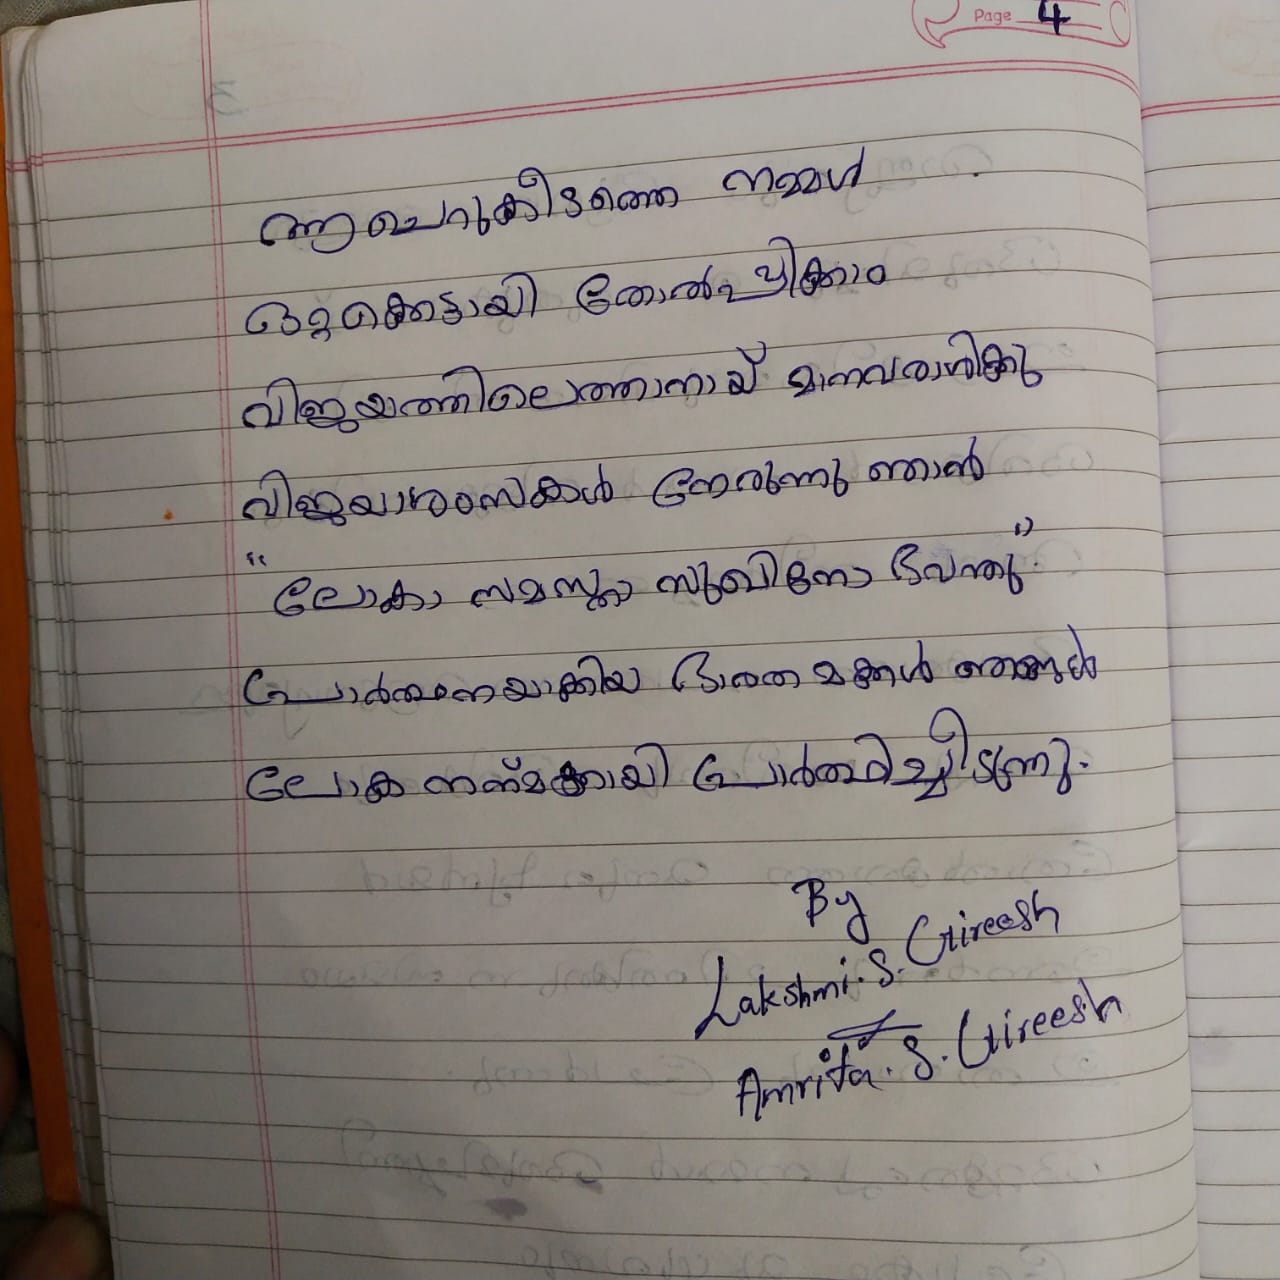 Page 4
ആ ചെറുകീടത്തെ നമ്മൾ
ഒറ്റക്കെട്ടായി തോൽപ്പിക്കാം
വിജയത്തിലെത്താനായ് മാനവരാശിക്കു
വിജയാശംസകൾ നേരുന്നു ഞാൻ
"ലോകാ സമസ്താ സുഖിനോ ഭവന്തു"
പ്രാർത്ഥനയാക്കിയ ഭാരത മക്കൾ ഞങ്ങൾ
ലോക നന്മക്കായി പ്രാർത്ഥിച്ചീടുന്നു.
By
Lakshmi. S. Gireesh
Amrita. S. Gireesh